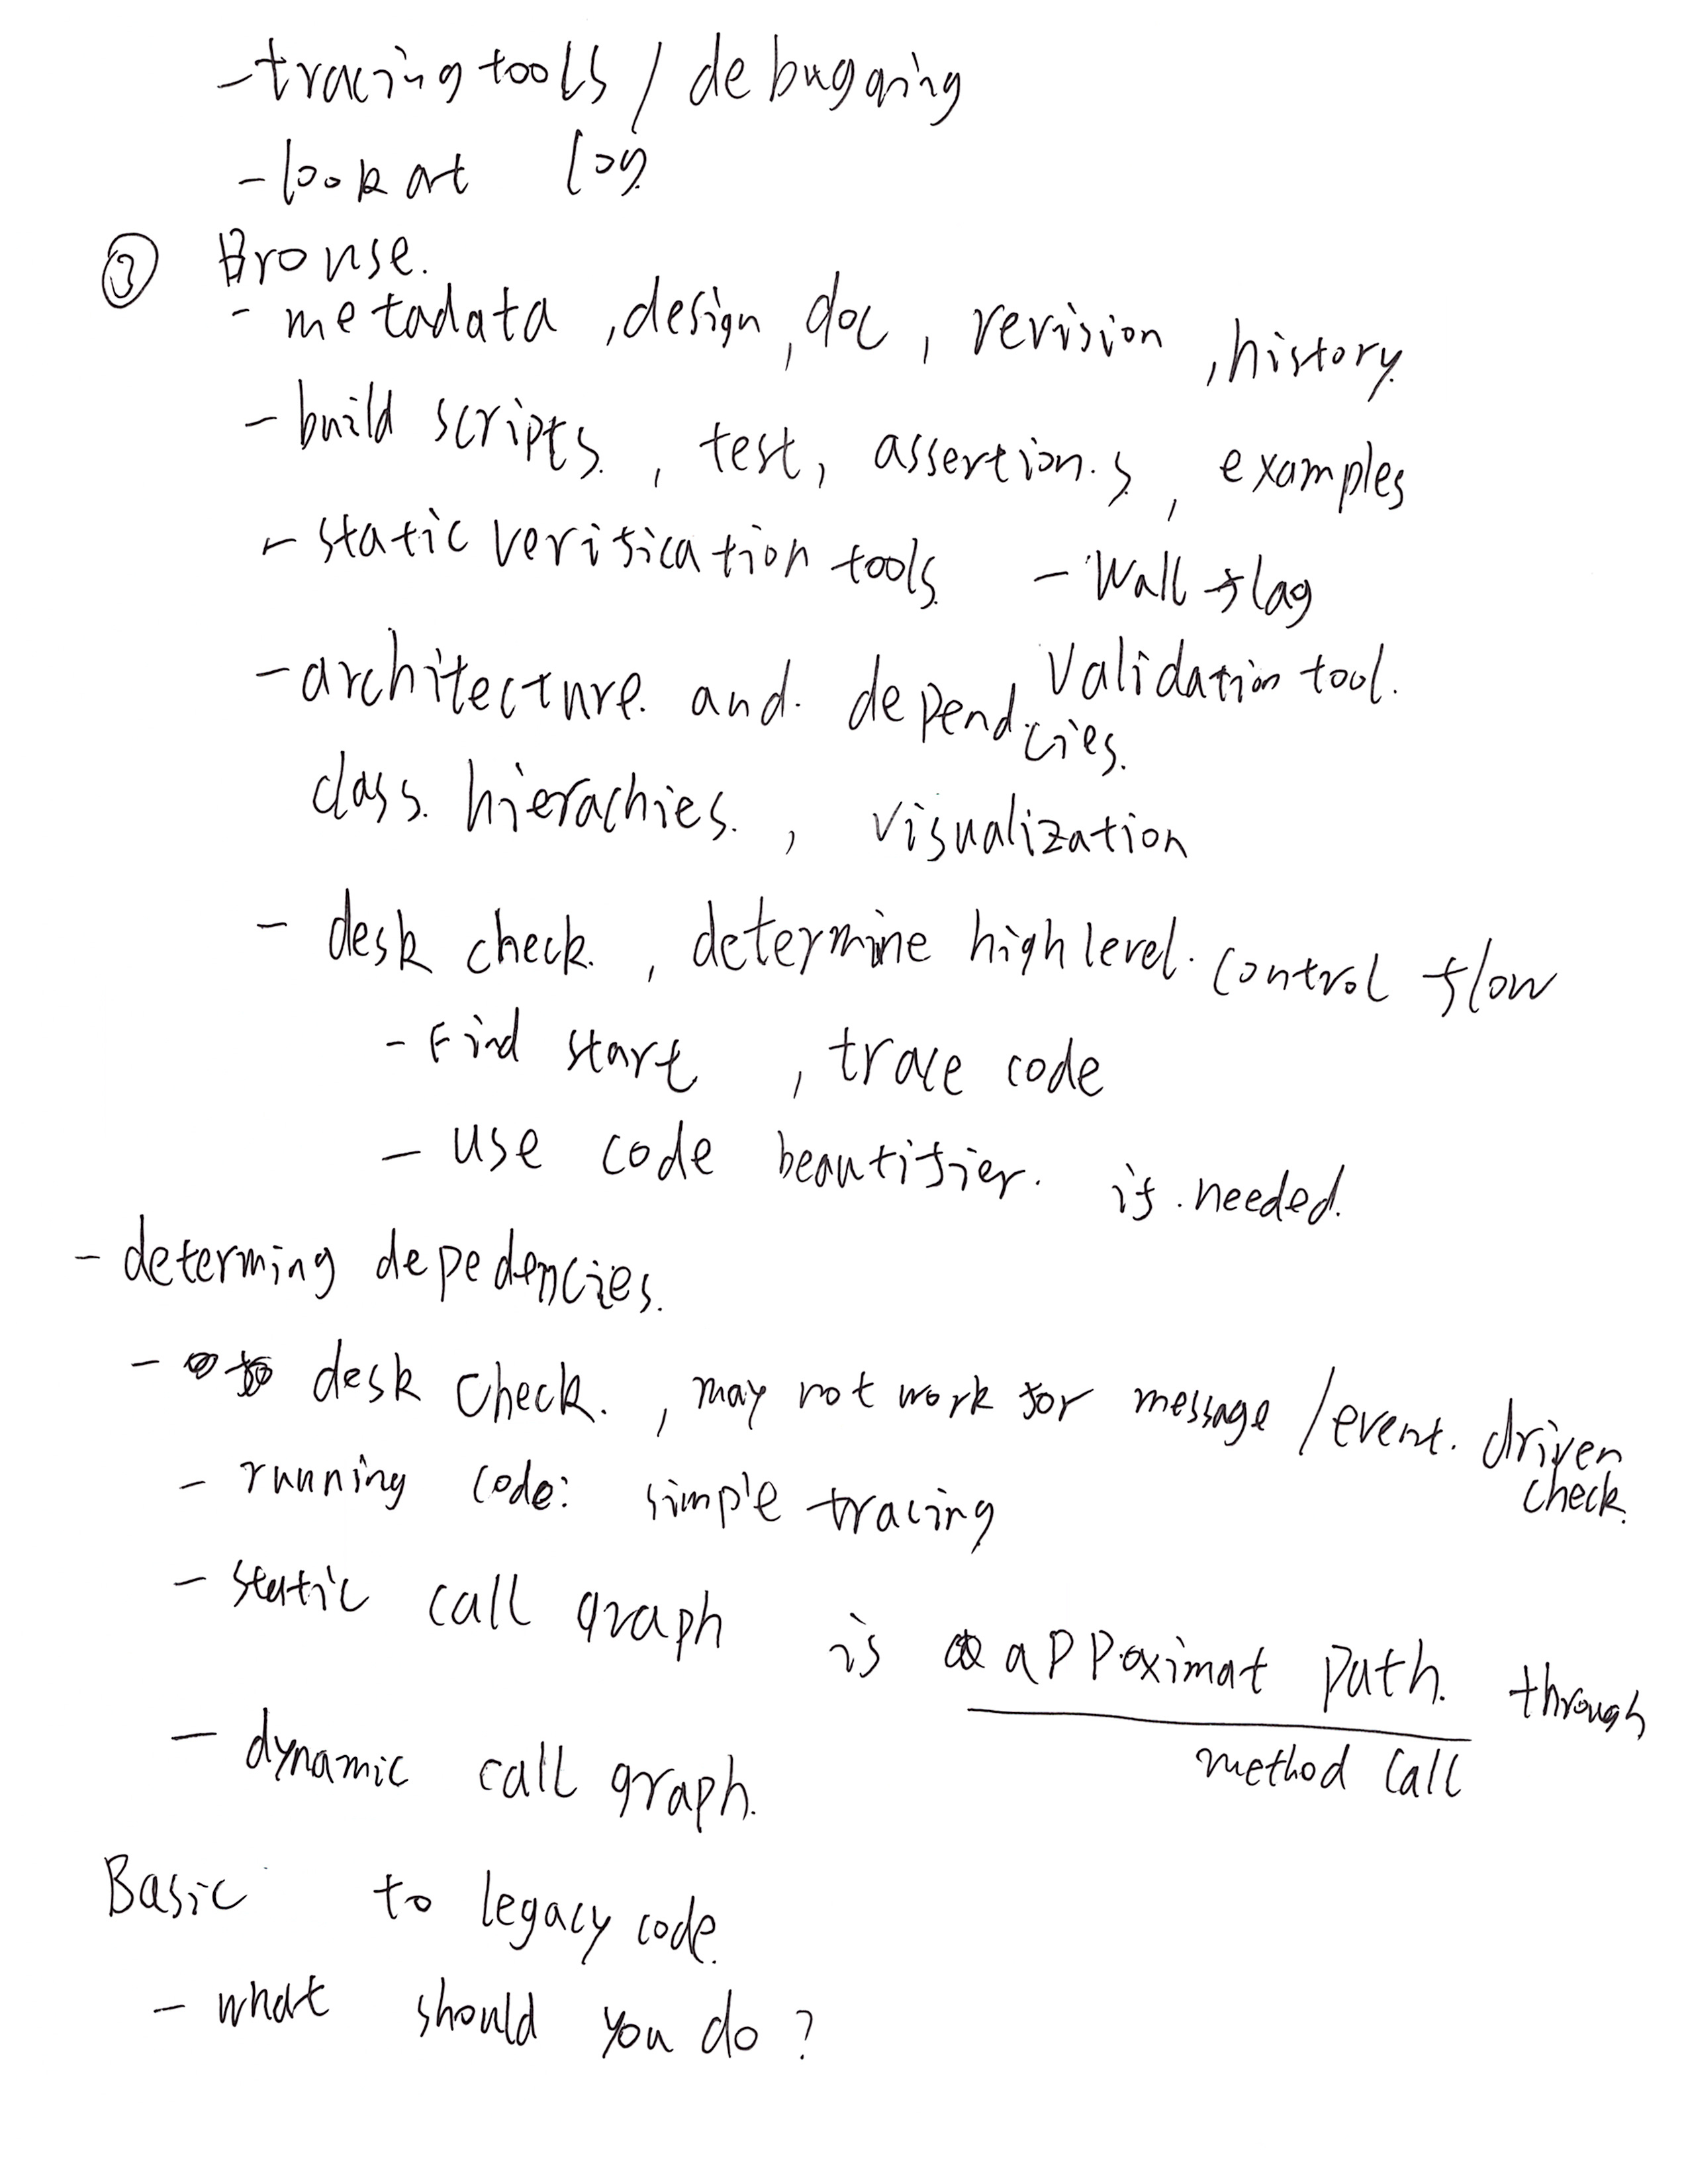 - tracing tools / debugging
- look at log
③ Browse.
- metadata , design , doc , revision , history
- build scripts , test , assertions , examples
- static verification tools - Wall flag
validation tool.
- architecture and dependcies.
class hierachies. , visualization
- desk check. , determine high level. control flow
- Find start , trace code
- use code beautifier. if needed.
- determing depedencies.
- desk check. , may not work for message / event. driven
check.
- running code: simple tracing
- static call graph is appoximat path. through
method call
- dynamic call graph.
Basic to legacy code.
- what should you do ?